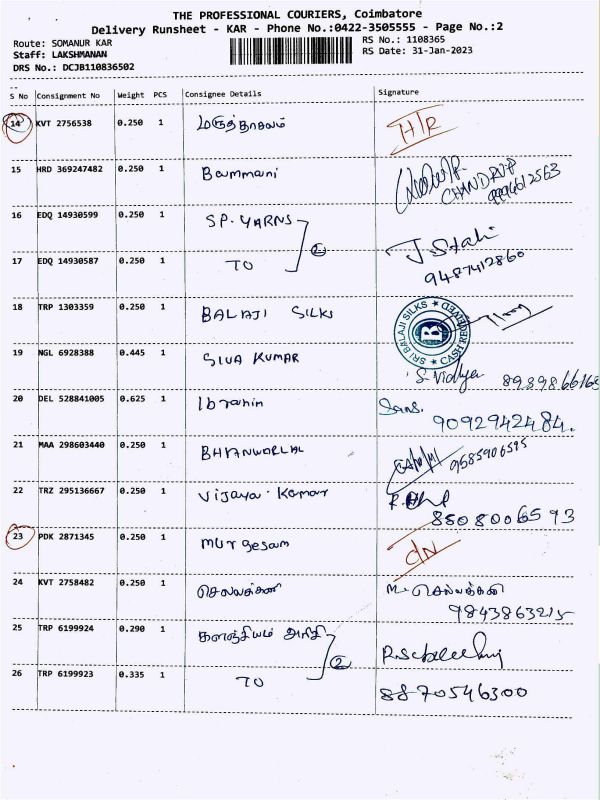 THE PROFESSIONAL COURIERS, Coimbatore
Delivery Runsheet - KAR - Phone No.:0422-3505555 - Page No.:2
Route: SOMANUR KAR
RS No.: 1108365
Staff: LAKSHMANAN
RS Date: 31-Jan-2023
DRS No.: DCJB110836502
S No Consignment No Weight PCS Consignee Details Signature
14 KVT 2756538 0.250 1 மருத்தாசலம் H/R
15 HRD 369247482 0.250 1 Bommani
CHANDRU P
9994612563
16 EDQ 14930599 0.250 1 SP. YARNS
2
17 EDQ 14930587 0.250 1 TO
9487412860
18 TRP 1303359 0.250 1 BALAJI SILKS
SRI BALAJI SILKS ★ CASH RECEIVED ★
B
19 NGL 6928388 0.445 1 SIVA KUMAR
S. Vidhya 8989866163
20 DEL 528841005 0.625 1 Ibrahin
9092942484.
21 MAA 298603440 0.250 1 BHANWARLAL
9585906595
22 TRZ 295136667 0.250 1 Vijaya Kumar
8508006593
23 PDK 2871345 0.250 1 Murgesam
24 KVT 2758482 0.250 1 செல்வக்கனி M. செல்வக்கனி
9843863215
25 TRP 6199924 0.290 1 களஞ்சியம் அரிசி
2
26 TRP 6199923 0.335 1 TO
8870546300